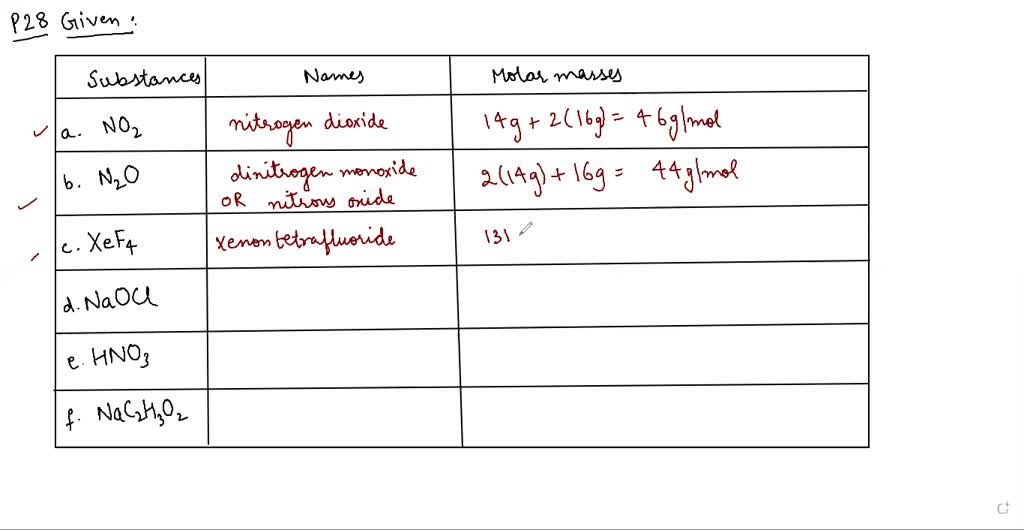 P28 Given :
Substances Names Molar masses
a. NO₂ nitrogen dioxide 14g + 2(16g) = 46g/mol
b. N₂O dinitrogen monoxide 2(14g) + 16g = 44g/mol
OR nitrous oxide
c. XeF₄ xenon tetrafluoride 131
d. NaOCl
e. HNO₃
f. NaC₂H₃O₂